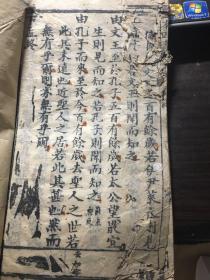 至於文王五百有餘歲若伊尹萊朱則
文王則聞而知之
由文王至於孔子五百有餘歲若太公望散宜
生則見而知之若孔子則聞而知之
由孔子而來至於今百有餘歲去聖人之世若
此其未遠也近聖人之居若此其甚也然而
無有乎爾則亦無有乎爾
終